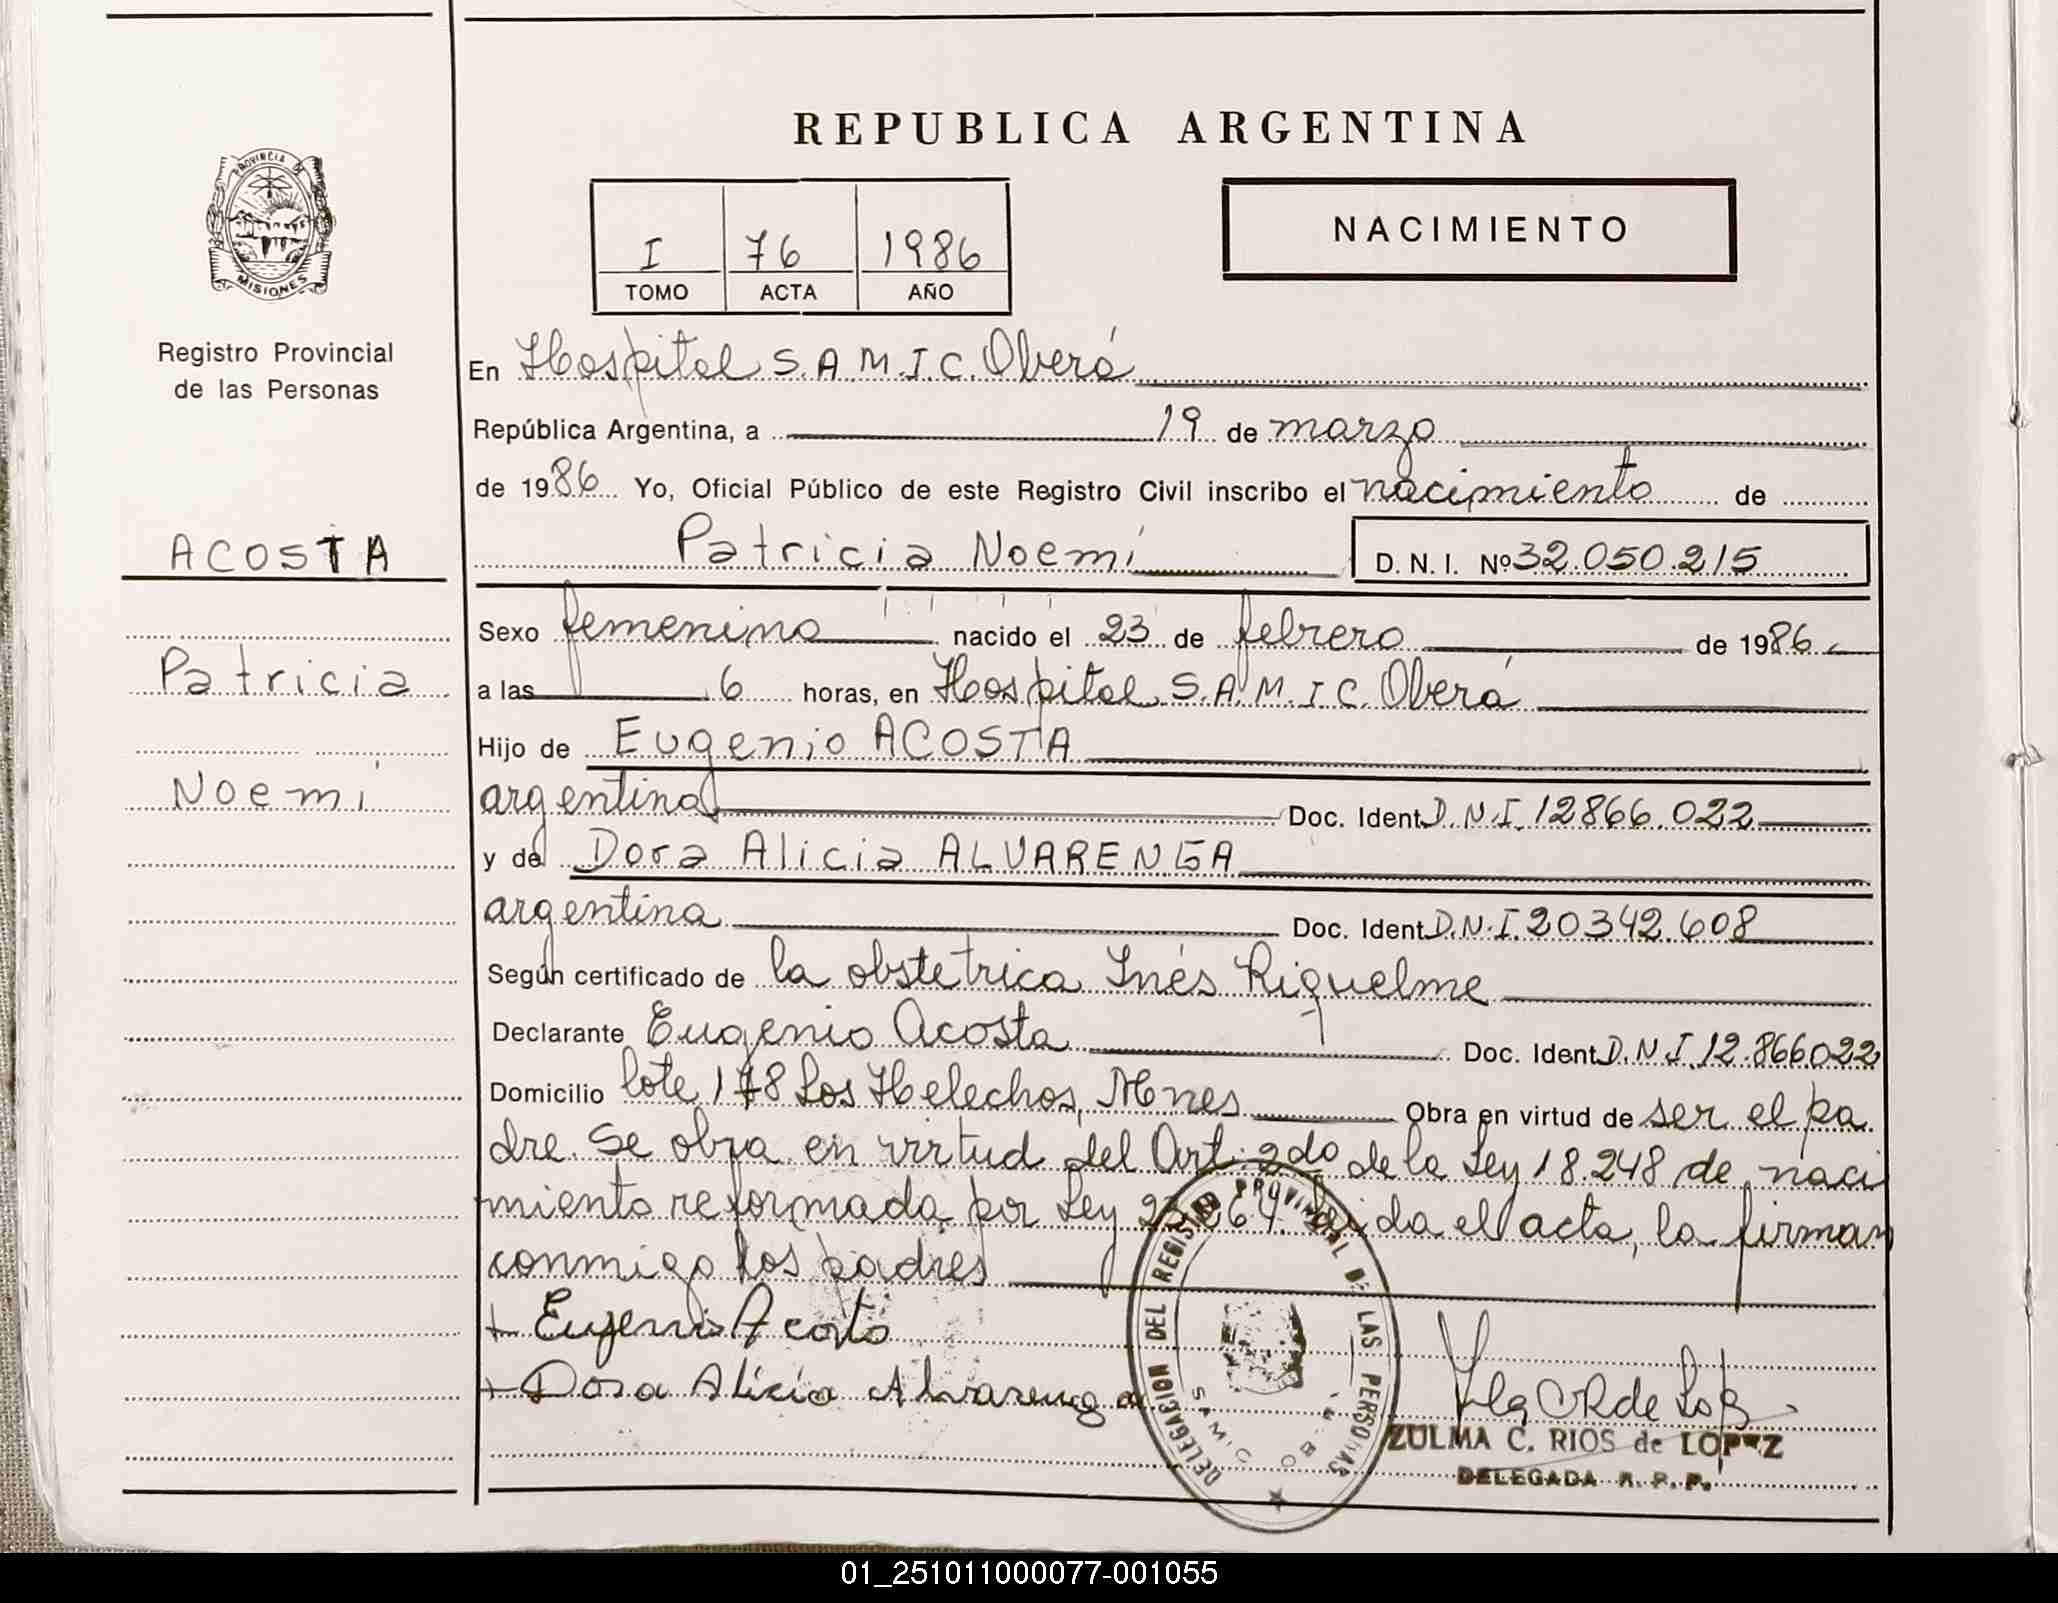 REPUBLICA ARGENTINA
PROVINCIA DE
MISIONES
Registro Provincial
de las Personas
I 76 1986
TOMO ACTA AÑO
NACIMIENTO
En Hospital S.A.M.I.C. Oberá
República Argentina, a 19 de marzo
de 1986 Yo, Oficial Público de este Registro Civil inscribo el nacimiento de
ACOSTA
Patricia Noemí D. N. I. Nº 32.050.215
Sexo femenino nacido el 23 de febrero de 1986
Patricia
a las 6 horas, en Hospital S.A.M.I.C. Oberá
Hijo de Eugenio ACOSTA
Noemí
argentina Doc. Ident. D.N.I. 12866.022
y de Dora Alicia ALVARENGA
argentina Doc. Ident. D.N.I. 20342.608
Según certificado de la obstetrica Inés Riquelme
Declarante Eugenio Acosta Doc. Ident. D.N.I. 12.866022
Domicilio lote 178 Los Helechos, Mnes Obra en virtud de ser el pa
dre. Se obra en virtud del Art. 2do de la Ley 18.248 de naci
miento reformada por Ley 23.264. Leida el acta, la firman
conmigo los padres
+ Eugenio Acosta
+ Dora Alicia Alvarenga
DELEGACION DEL REGISTRO PROVINCIAL DE LAS PERSONAS
SAMIC
ZULMA C. RIOS de LOPEZ
DELEGADA R. P. P.
01_251011000077-001055